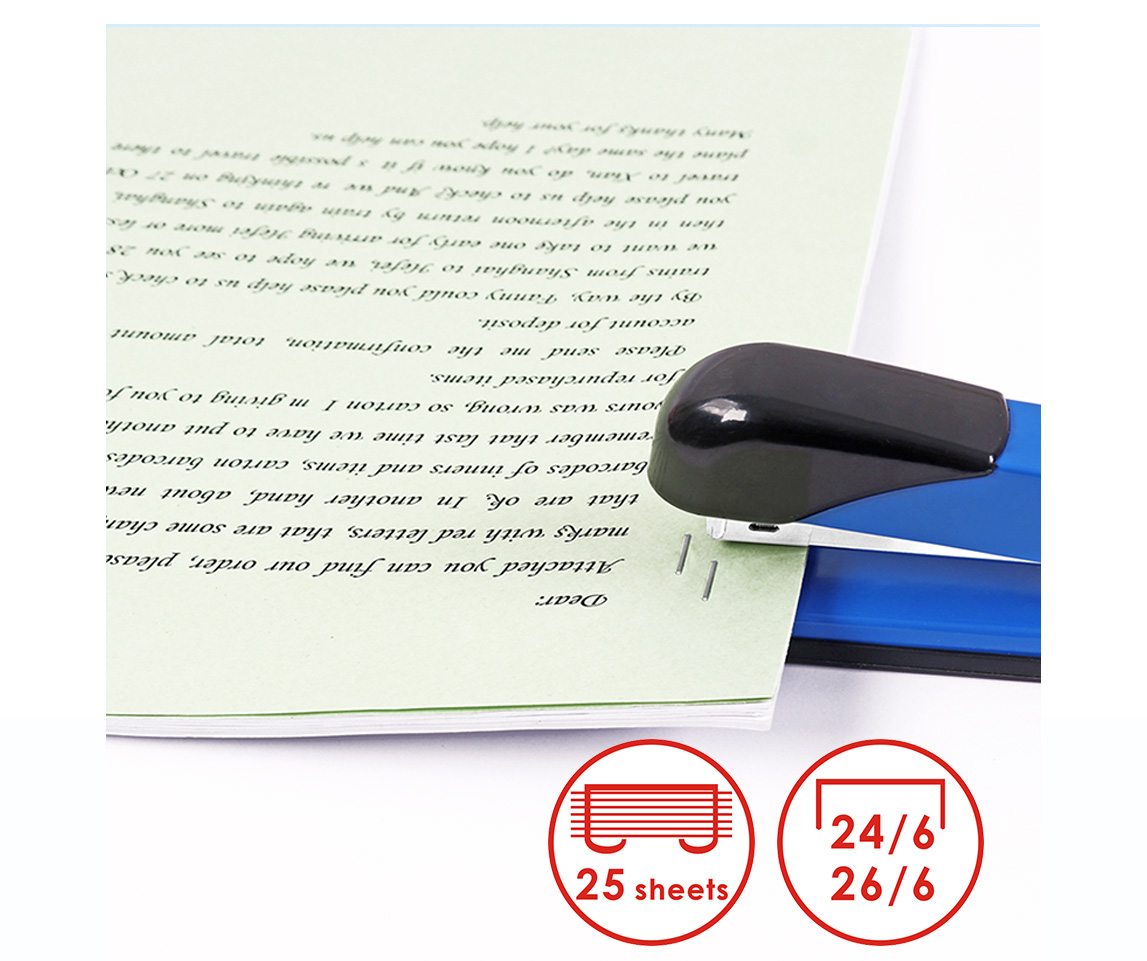 Dear:
Attached you can find our order, please
marks with red letters, that are some chang
that are ok. In another hand, about new
barcodes of inners and items, carton barcodes
remember that last time we have to put anothe
yours was wrong, so carton I m giving to you fo
for repurchased items.
Please send me the confirmation, total amount
account for deposit.
By the way, Fanny could you please help us to check s
trains from Shanghai to Hefei, we hope to see you 28
we want to take one early for arriving Hefei more or les
then in the afternoon return by train again to Shanghai,
you please help us to check? And we re thinking on 27 Oc
travel to Xian, do you know if it s possible travel to there
plane the same day? I hope you can help us.
Many thanks for your help.
25 sheets
24/6
26/6